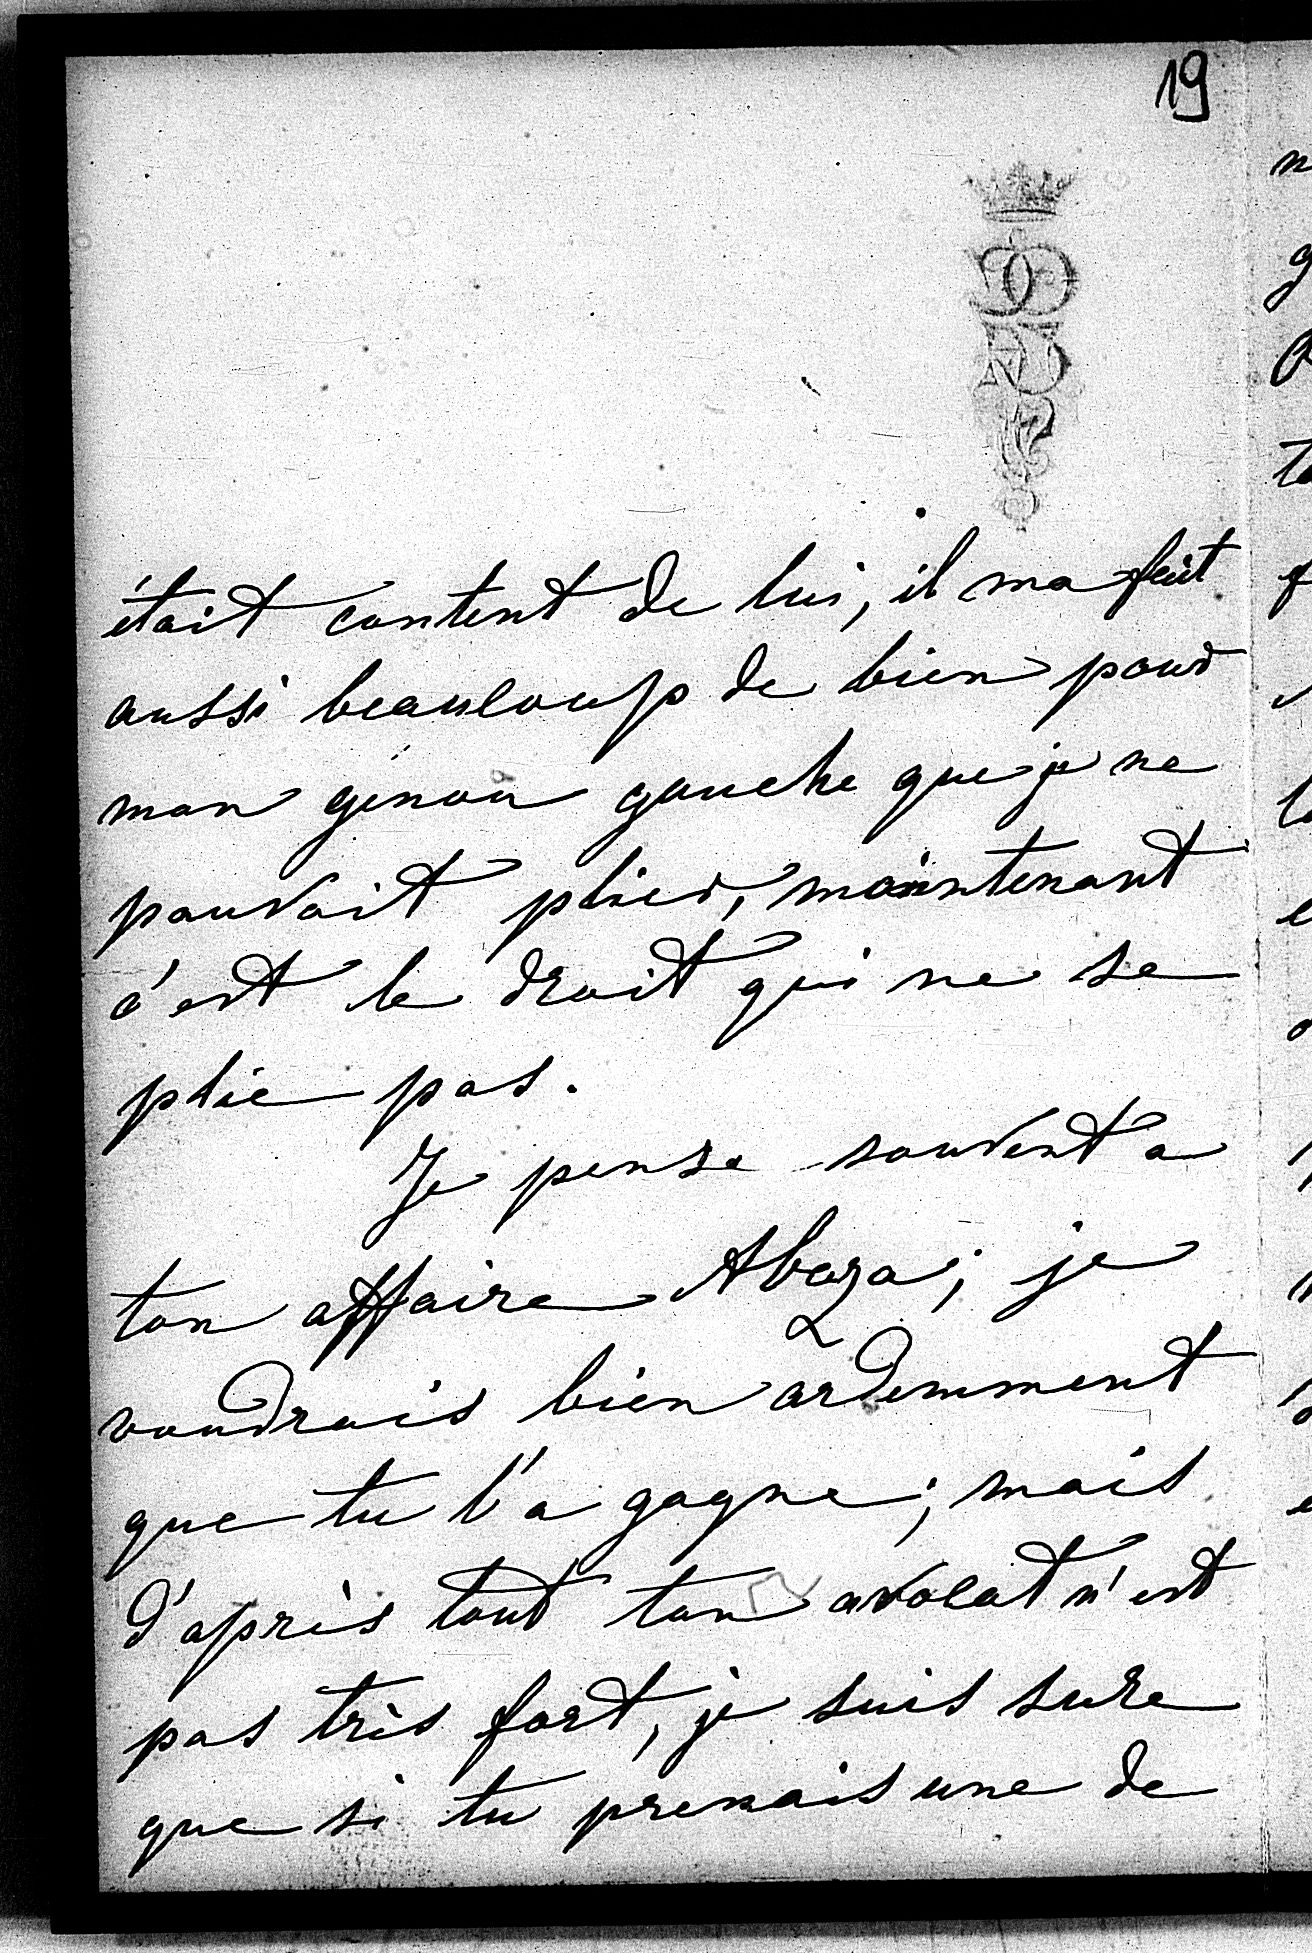 19
était content de lui, il ma fait
aussi beaucoup de bien pour
mon genou gauche que je ne
pouvait plier, maintenant
c'est le droit qui ne se
plie pas.
Je pense souvent a
ton affaire Abaza; je
voudrais bien ardemment
que tu l'a gagne; mais
d'après tout ton avocat n'est
pas très fort, je suis sure
que si tu prenais une de